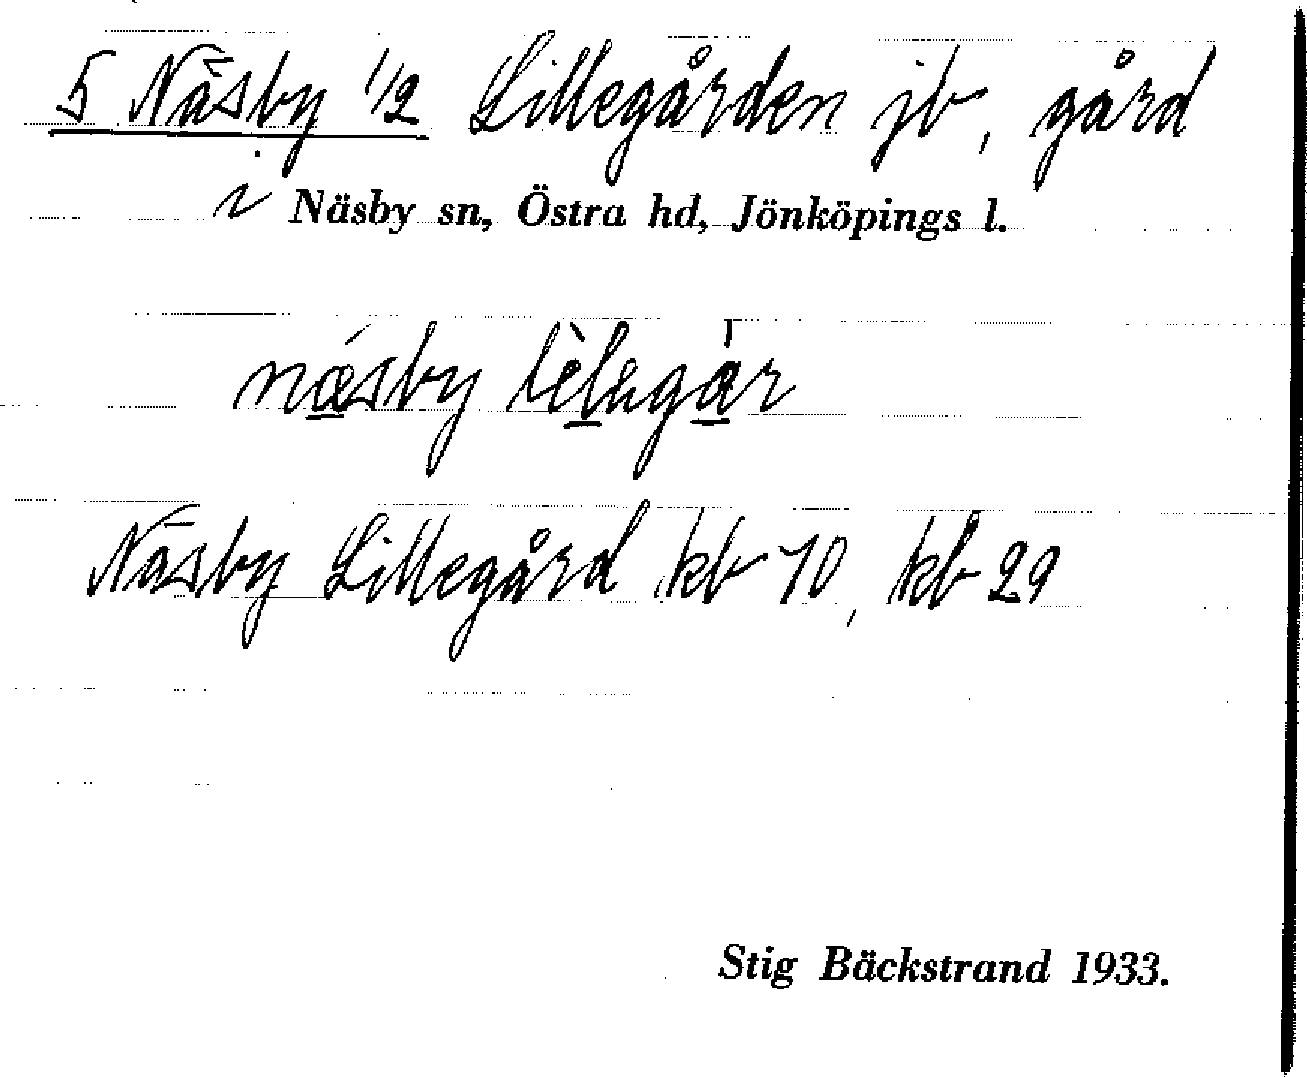 5 Näsby 1/2 Lillegården jb, gård
i Näsby sn, Östra hd, Jönköpings l.
Näsby Lillegård kb 10, kb 29
Stig Bäckstrand 1933.